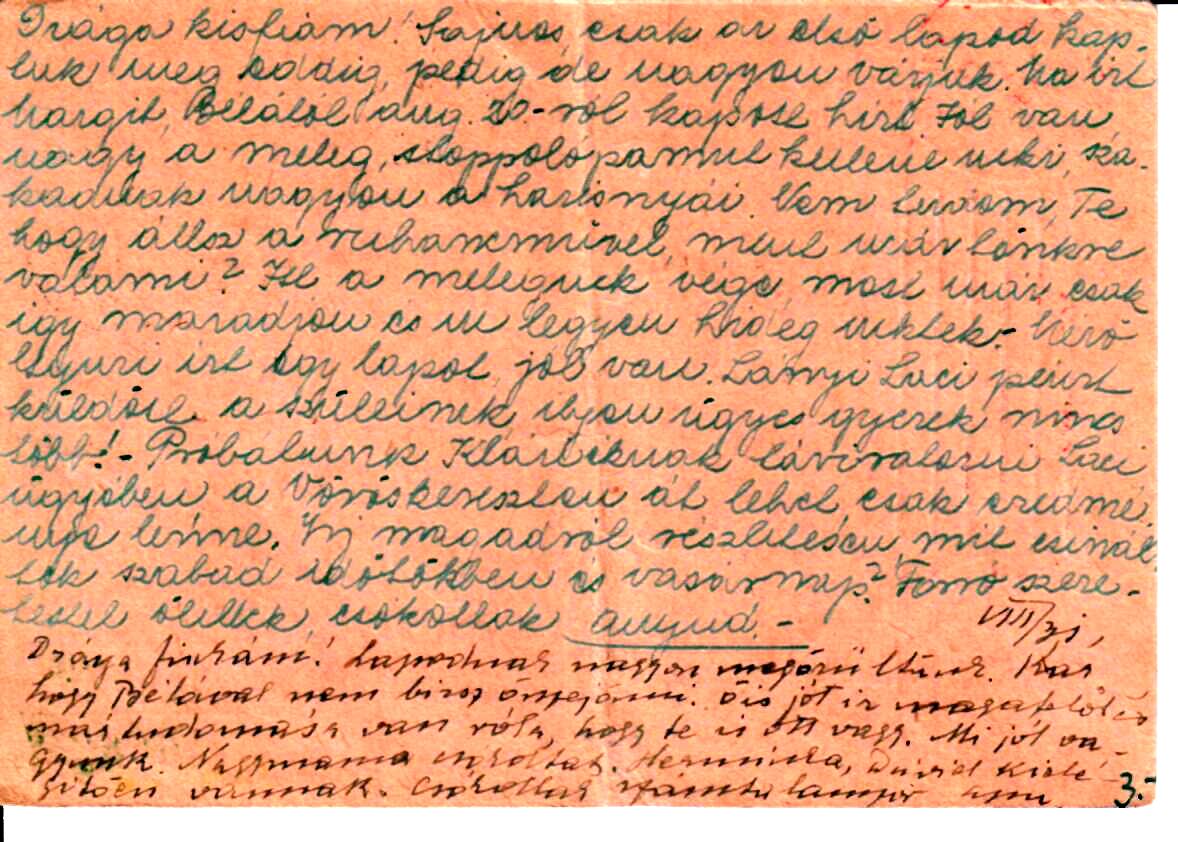 Drága kisfiam! Sajnos, csak az első lapod kap-
tuk meg eddig, pedig de nagyon várjuk. Ma írt
Margit, Bélától aug. 20-ról kapott hírt. Jól van,
nagy a meleg, stoppoló pamut kellene neki, sza-
kadnak nagyon a harisnyái. Nem tudom, Te
hogy állsz a ruhaneművel, ment már tönkre
valami? Itt a melegnek vége, most már csak
így maradjon és ne legyen hideg nektek. -
Gyuri írt egy lapot, jól van. Lányi Laci pénzt
küldött a szüleinek ilyen ügyes gyerek nincs
több! - Próbálunk Kláriéknak táviratozni Laci
ügyében a Vöröskereszten át lehet csak eredmé-
nye lenne. Írj magadról részletesen, mit csinál-
tok szabad időtökben és vasárnap? Forró szere-
tettel ölellek, csókollak anyud. -
VIII/31,
Drága fiukám! Lapodnak nagyon megörültünk. Kár
hogy Bélával nem birsz összejönni. Ő is jót ír magáról és
már tudomása van róla, hogy te is ott vagy. Mi jól va-
gyunk. Nagymama csókoltat. Herminka, Dávid kielé-
gítően vannak. Csókollak
3.-